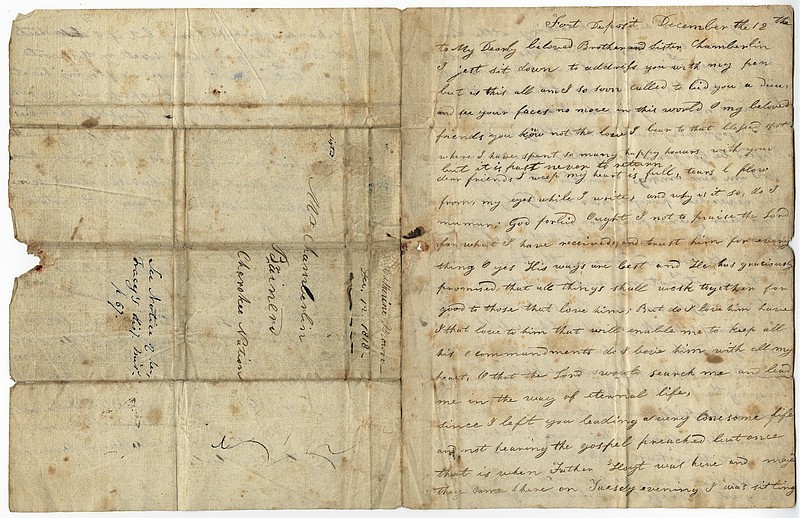 Fort Deposit December the 12 the
to My Dearly beloved Brother and Sister Chamberlin
I jest sit down to address you with my pen
but is this all am I so soon called to bid you adieu
and see your faces no more in this world O my beloved
friends you know not the love I bear to that blessed spot
where I have spent so many happy hours with your
but it is past never to return
dear friends I weep my heart is full, tears flow
from my eyes while I write, and why is it so, do I
mumur; God forbid Ought I not to praise the Lord
for what I have received and trust him for every
thing O yes His ways are best and He has graciously
promised that all things shall work together for
good to those that love him; But do I love him have
I that love to him that will enable me to keep all
his commandments do I love him with all my
heart, O that the Lord would search me and lead
me in the way of eternal life,
since I left you leading a very lonesome life
and not hearing the gospel preached but once
that is when Father Hoyt was here and
they came here on Tuesdy evening I was sitting
Catharine Brown
Dec, 12, 1818
Mr Chamberlin
Brainerd
Cherokee Nation
See Notice of her
Tracy's hist. miss.
p 67